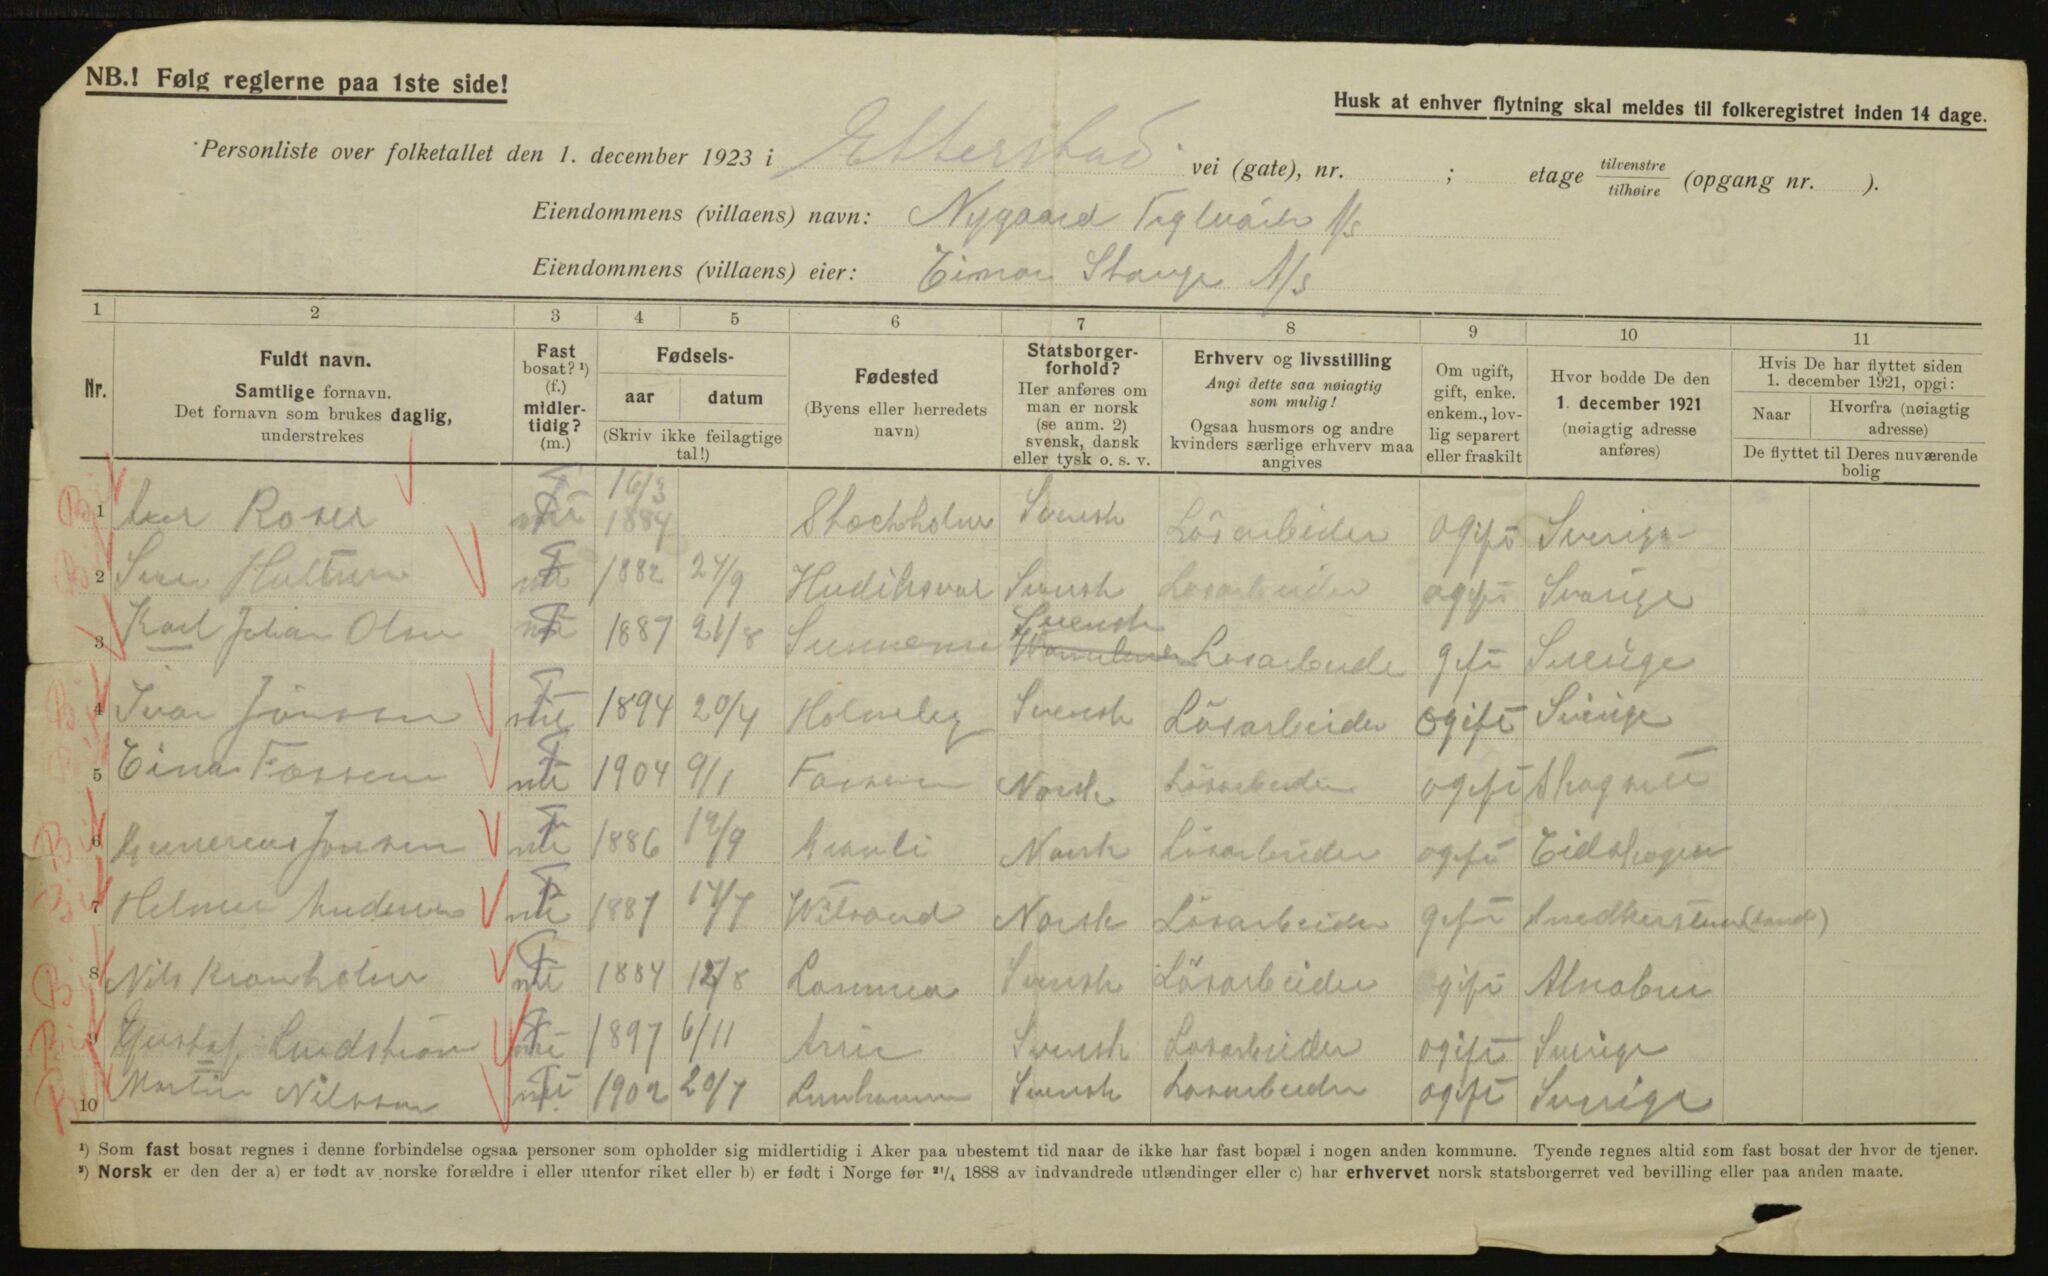 NB.! Følg reglerne paa 1ste side!
Husk at enhver flytning skal meldes til folkeregistret inden 14 dage.
Personliste over folketallet den 1. december 1923 i Etterstad vei (gate), nr. ; etage tilvenstre tilhøire (opgang nr. ).
Eiendommens (villaens) navn: Nygaard Teglværk A/s
Eiendommens (villaens) eier: Einar Stange A/s
1 2 3 4 5 6 7 8 9 10 11
Nr.
Fuldt navn.
Samtlige fornavn.
Det fornavn som brukes daglig,
understrekes
Fast
bosat? ¹)
(f.)
midler-
tidig?
(m.)
Fødsels-
aar datum
(Skriv ikke feilagtige
tal!)
Fødested
(Byens eller herredets
navn)
Statsborger-
forhold?
Her anføres om
man er norsk
(se anm. 2)
svensk, dansk
eller tysk o. s. v.
Erhverv og livsstilling
Angi dette saa nøiagtig
som mulig!
Ogsaa husmors og andre
kvinders særlige erhverv maa
angives
Om ugift,
gift, enke.
enkem., lov-
lig separert
eller fraskilt
Hvor bodde De den
1. december 1921
(nøiagtig adresse
anføres)
Hvis De har flyttet siden
1. december 1921, opgi:
Naar Hvorfra (nøiagtig
adresse)
De flyttet til Deres nuværende
bolig
1 16/3 1884 Stockholm Svensk Lösarbeider ogift Sverige
2 Sven 1882 24/9 Hudiksval Svensk Lösarbeider ogift Sverige
3 Karl Johan Olsen 1887 21/8 Sunnemo Svensk Lösarbeider gift Sverige
4 Ivar Jönsson 1894 20/4 Svensk Lösarbeider ogift Sverige
5 Einar Fossen 1904 9/1 Fossen Norsk Lösarbeider ogift
6 Jonsen 1886 19/9 Norsk Lösarbeider ogift Eidskogen
7 Helmer Andersen 1887 17/7 Norsk Lösarbeider gift
8 Nils Kronholm 1884 8 Svensk Lösarbeider gift Alnabru
9 Gustaf Lindström 1897 6/11 Arrie Svensk Lösarbeider ogift Sverige
10 Martin Nilsson 1902 20/7 Svensk Lösarbeider ogift Sverige
¹) Som fast bosat regnes i denne forbindelse ogsaa personer som opholder sig midlertidig i Aker paa ubestemt tid naar de ikke har fast bopæl i nogen anden kommune. Tyende regnes altid som fast bosat der hvor de tjener.
²) Norsk er den der a) er født av norske forældre i eller utenfor riket eller b) er født i Norge før 21/4 1888 av indvandrede utlændinger eller c) har erhvervet norsk statsborgerret ved bevilling eller paa anden maate.